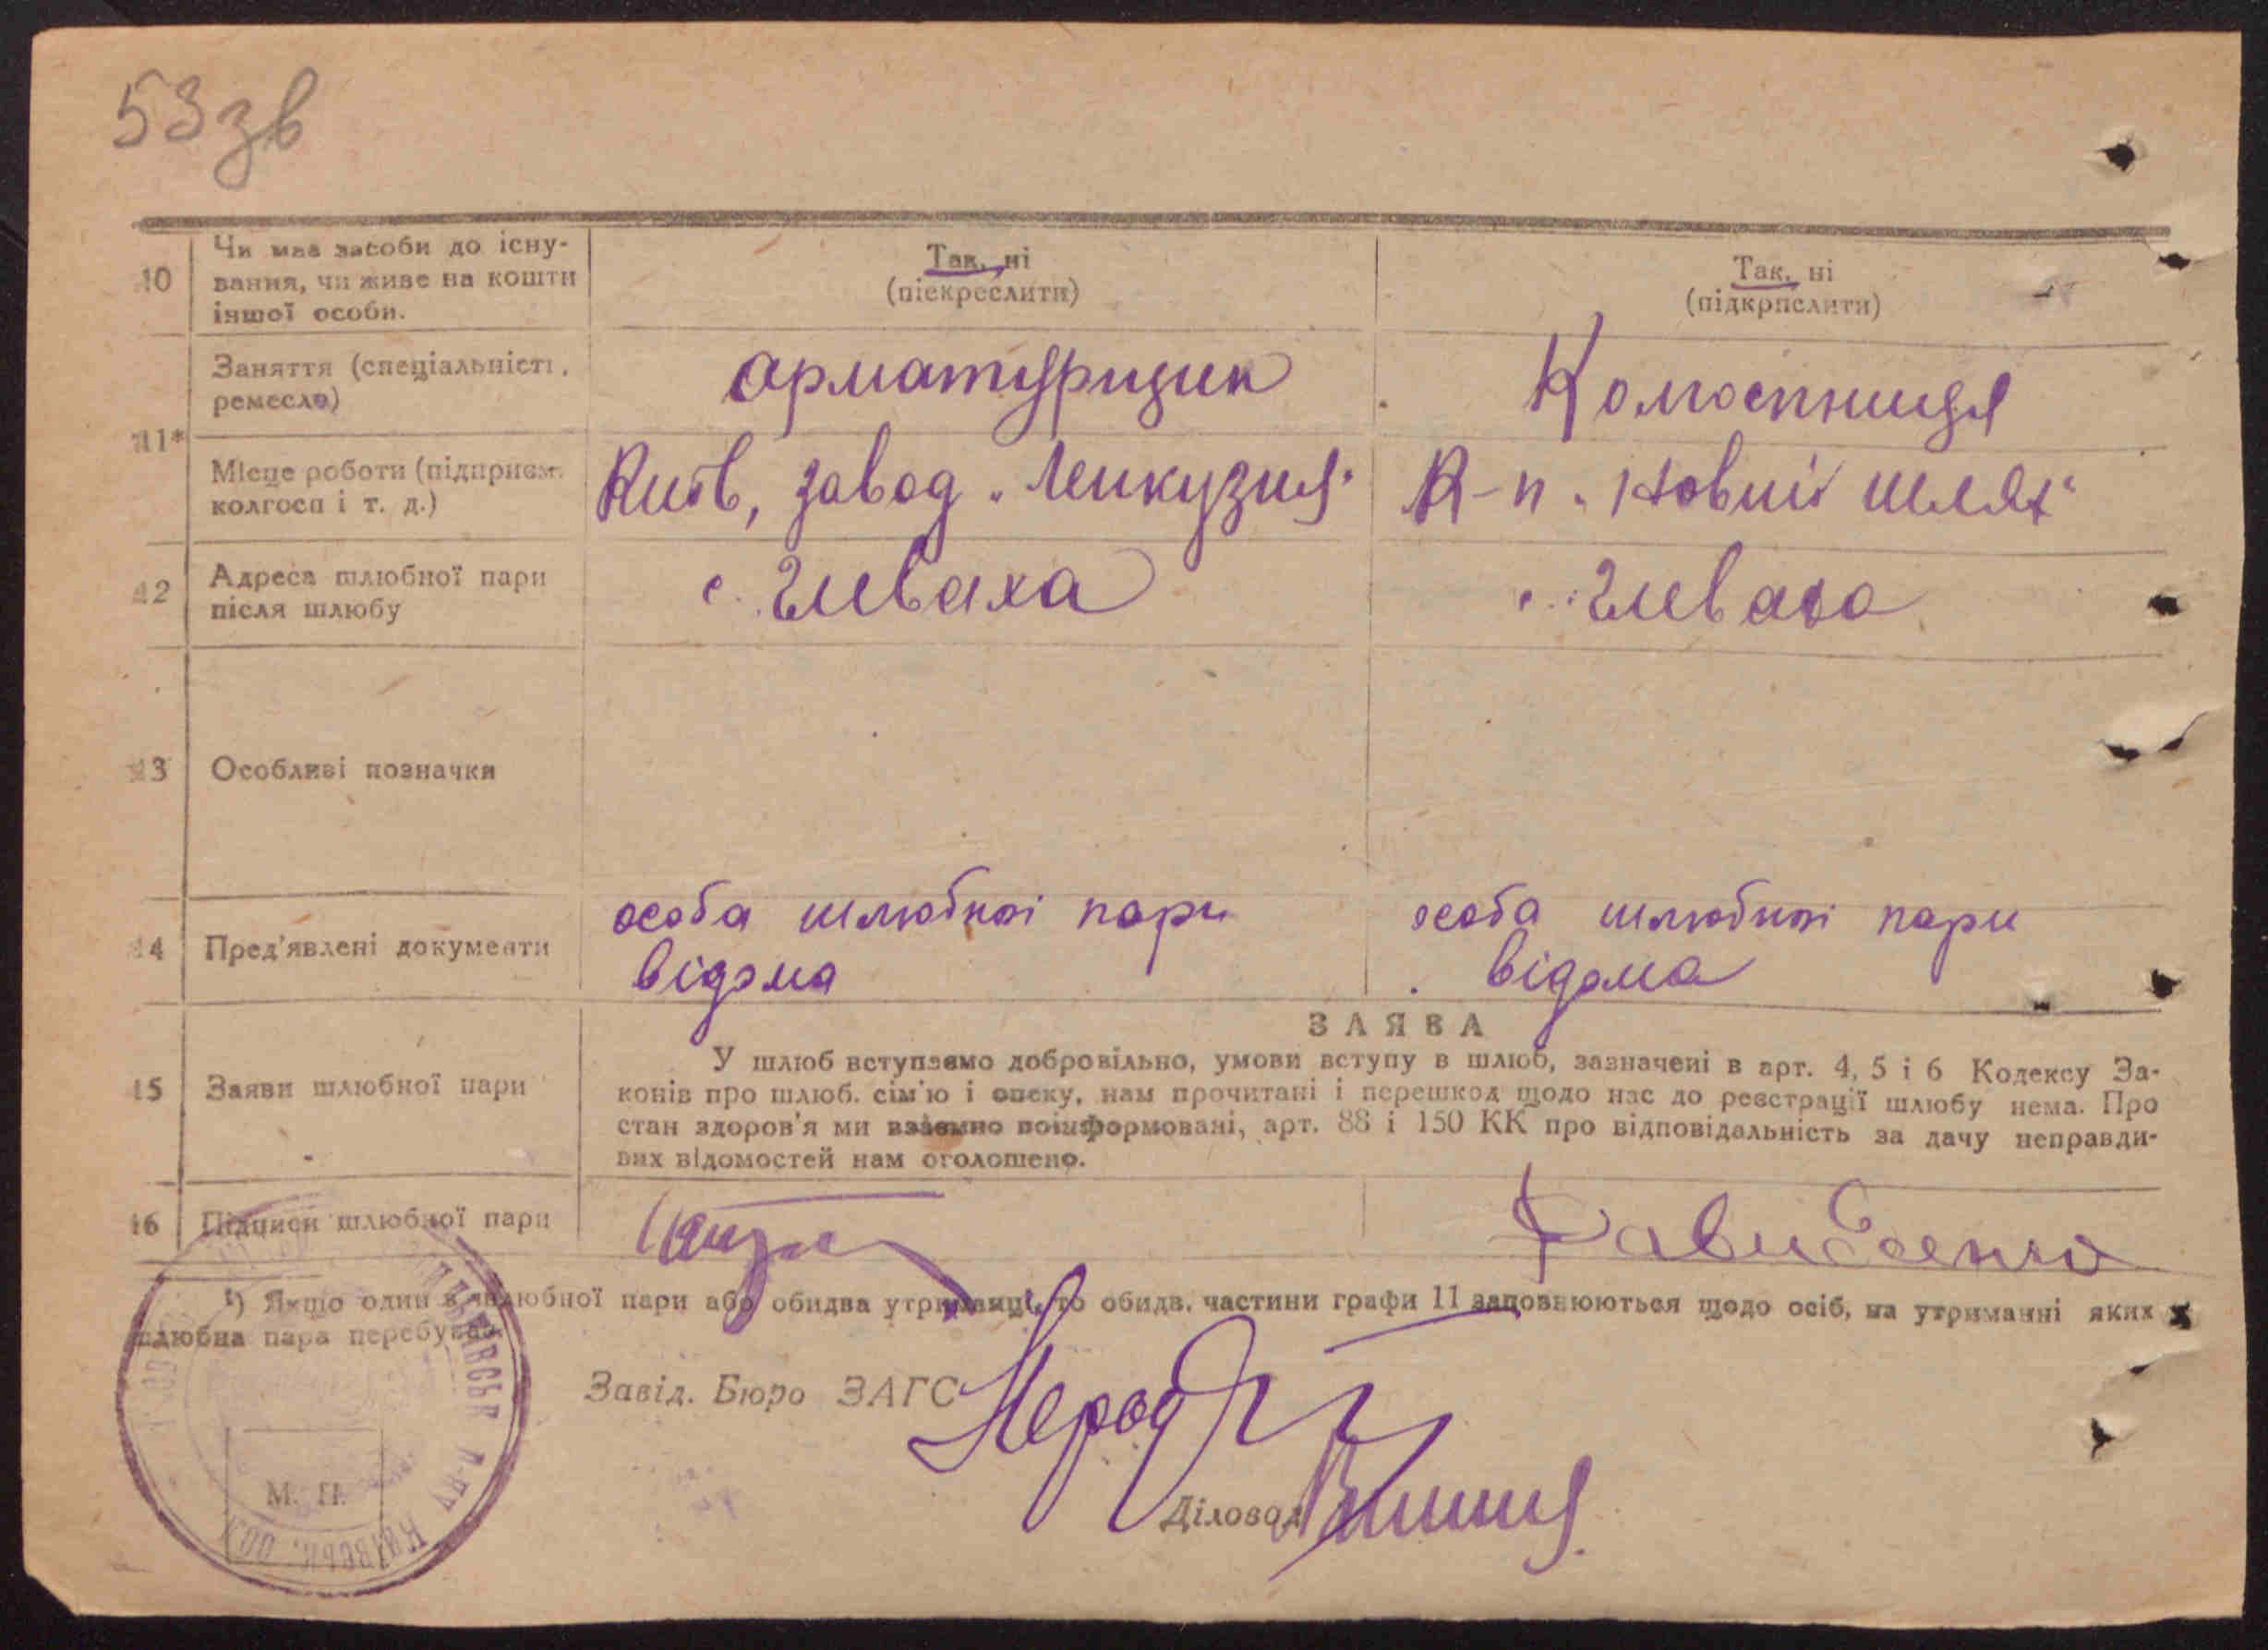 53зв
10
Чи має засоби до існу-
вання, чи живе на кошти
іншої особи.
Так, ні
(піекреслити)
Так, ні
(підкрпслити)
11*
Заняття (спеціальністі,
ремесло)
арматурщик
Місце роботи (підприєм.
колгосп і т. д.)
Київ, завод „Ленкузня"
К-п „Новий шлях"
12
Адреса шлюбної пари
після шлюбу
с. Глеваха
с. Глеваха
13
Особливі позначки
14
Пред'явлені документи
особа шлюбної пари
відома
особа шлюбної пари
відома
15
Заяви шлюбної пари
ЗАЯВА
У шлюб вступаємо добровільно, умови вступу в шлюб, зазначені в арт. 4, 5 і 6 Кодексу За-
конів про шлюб. сім'ю і опеку, нам прочитані і перешкод щодо нас до реєстрації шлюбу нема. Про
стан здоров'я ми взаємно поінформовані, арт. 88 і 150 КК про відповідальність за дачу неправди-
вих відомостей нам оголошено.
16
Підписи шлюбної пари
Давиденко
¹) Якщо один з шлюбної пари або обидва утриманці, то обидв. частини графи 11 заповнюються щодо осіб, на утриманні яких
шлюбна пара перебуває.
Завід. Бюро ЗАГС
Діловод
М. П.